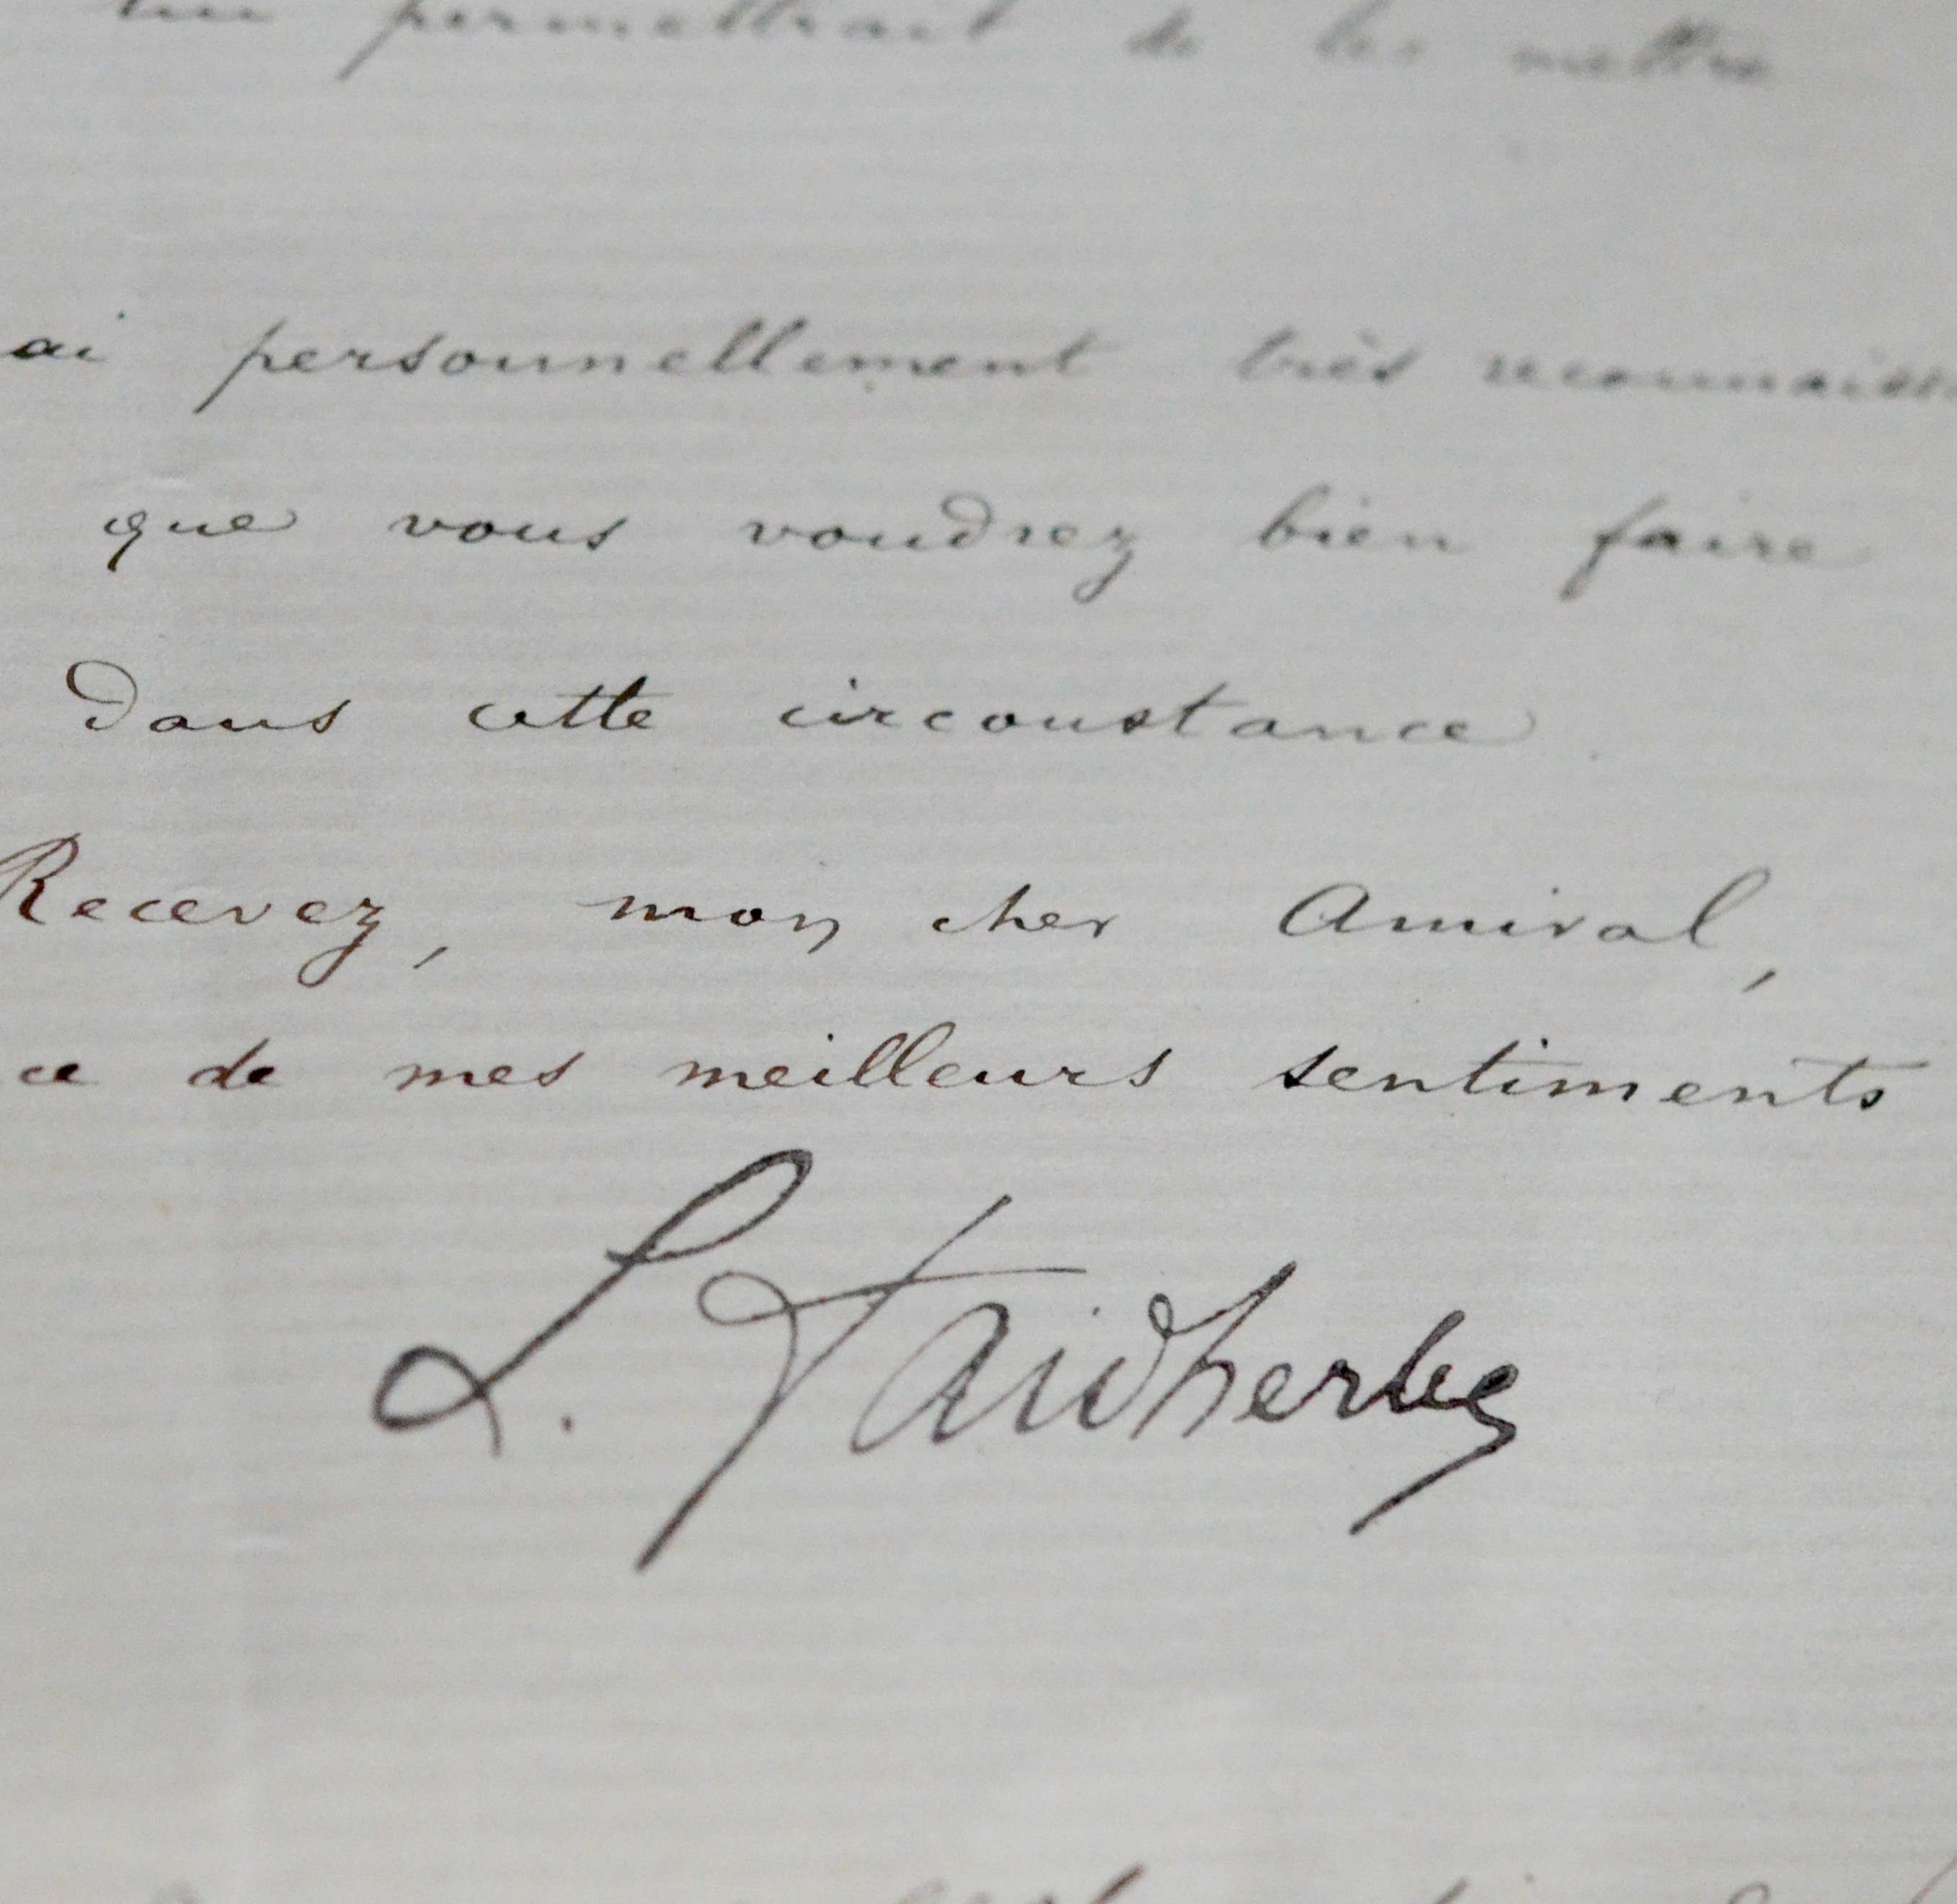 permettrait de les mettre
ai personnellement très reconnaiss
que vous voudrez bien faire
dans cette circonstance
Recevez, mon cher Amiral,
ce de mes meilleurs sentiments
L. Faidherbe